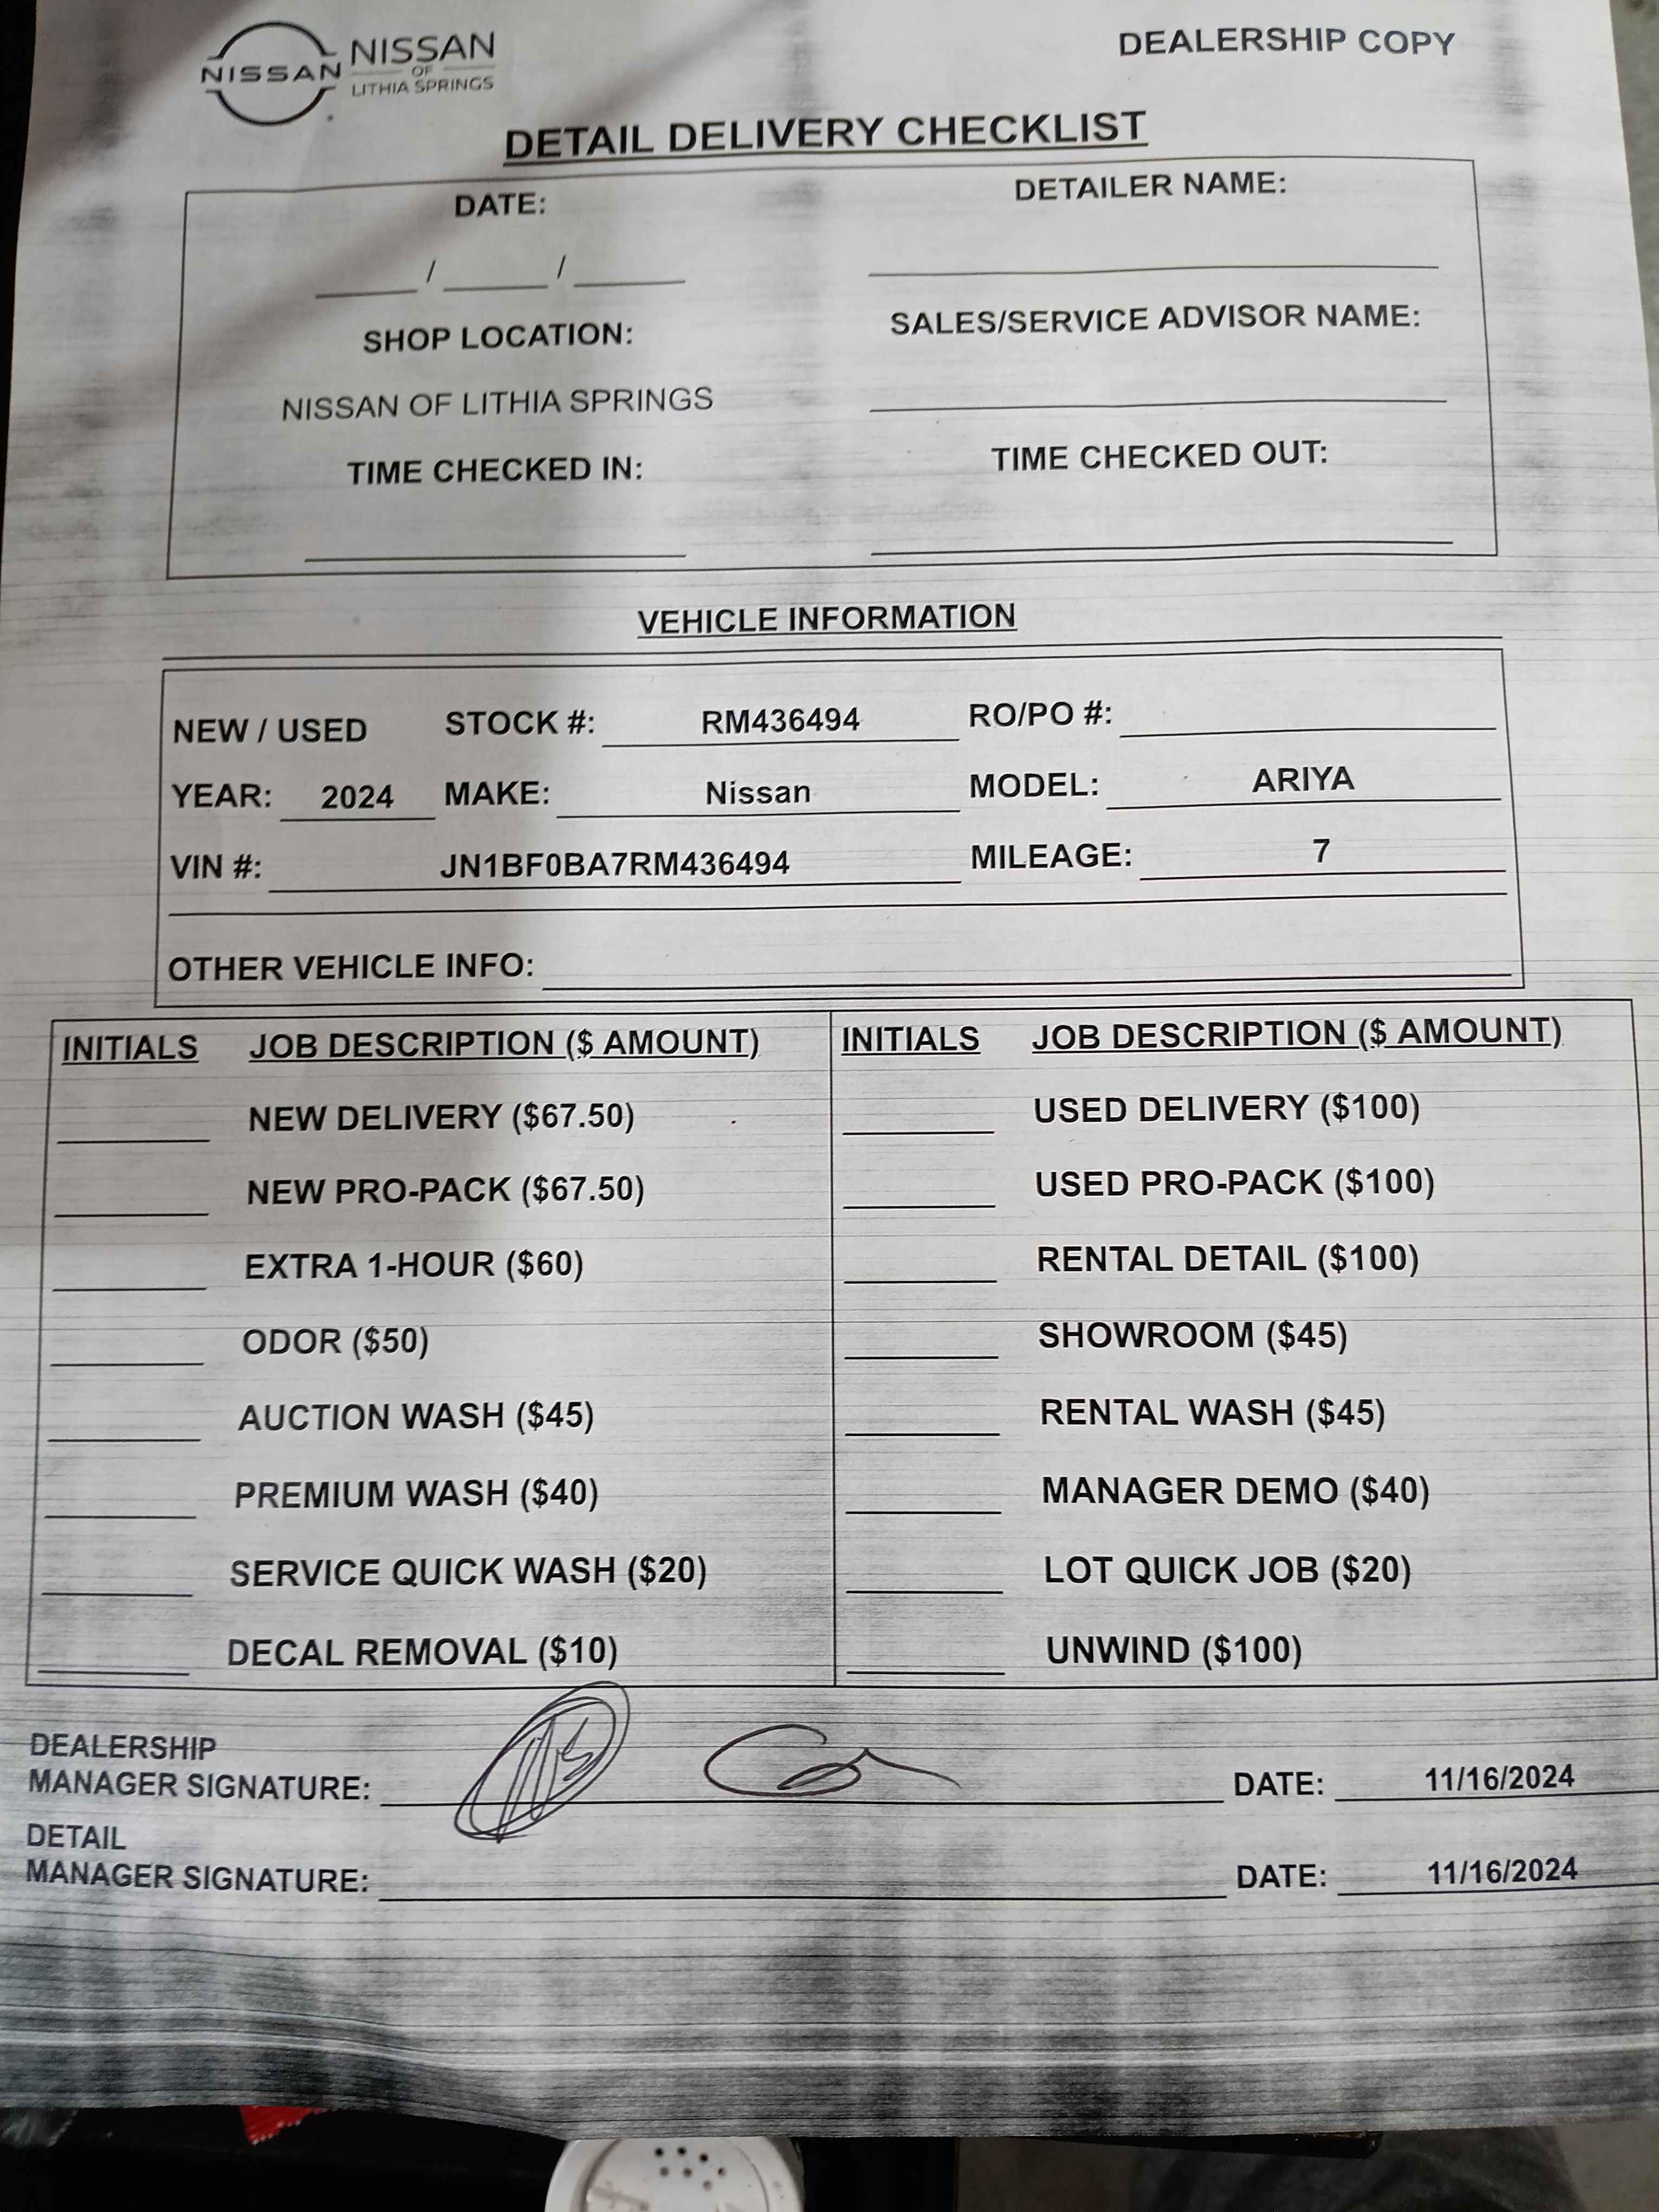 NISSAN NISSAN
OF
LITHIA SPRINGS
DEALERSHIP COPY
DETAIL DELIVERY CHECKLIST
DATE: DETAILER NAME:
____/____/____ ____
SHOP LOCATION: SALES/SERVICE ADVISOR NAME:
NISSAN OF LITHIA SPRINGS
TIME CHECKED IN: TIME CHECKED OUT:
VEHICLE INFORMATION
NEW / USED STOCK #: RM436494 RO/PO #:
YEAR: 2024 MAKE: Nissan MODEL: ARIYA
VIN #: JN1BF0BA7RM436494 MILEAGE: 7
OTHER VEHICLE INFO:
INITIALS JOB DESCRIPTION ($ AMOUNT) INITIALS JOB DESCRIPTION ($ AMOUNT)
NEW DELIVERY ($67.50) USED DELIVERY ($100)
NEW PRO-PACK ($67.50) USED PRO-PACK ($100)
EXTRA 1-HOUR ($60) RENTAL DETAIL ($100)
ODOR ($50) SHOWROOM ($45)
AUCTION WASH ($45) RENTAL WASH ($45)
PREMIUM WASH ($40) MANAGER DEMO ($40)
SERVICE QUICK WASH ($20) LOT QUICK JOB ($20)
DECAL REMOVAL ($10) UNWIND ($100)
DEALERSHIP
MANAGER SIGNATURE: DATE: 11/16/2024
DETAIL
MANAGER SIGNATURE: DATE: 11/16/2024